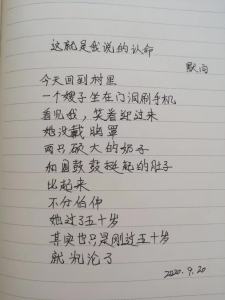 这就是我说的认命
默向
今天回到村里
一个嫂子坐在门洞刷手机
看见我，笑着迎过来
她没戴胸罩
两只硕大的奶子
和圆鼓鼓挺起的肚子
比起来
不分伯仲
她过了五十岁
其实也只是刚过五十岁
就沦沦了
2020.9.20